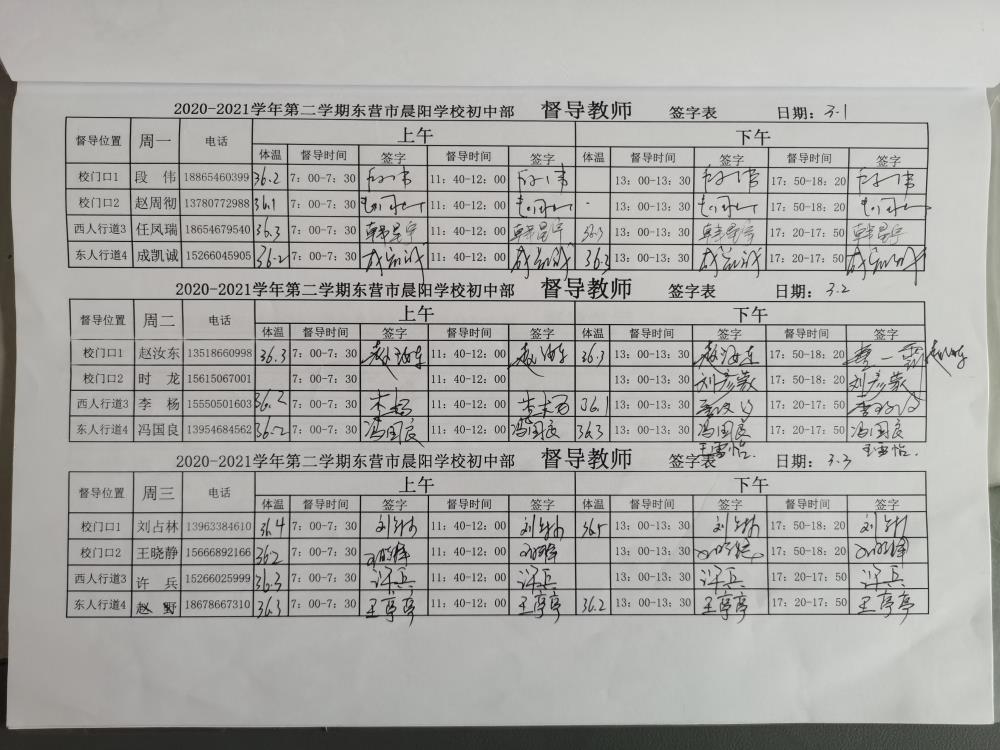 2020-2021学年第二学期东营市晨阳学校初中部 督导教师 签字表 日期：3.1
督导位置 周一 电话 上午 下午
体温 督导时间 签字 督导时间 签字 体温 督导时间 签字 督导时间 签字
校门口1 段 伟 18865460399 36.2 7：00-7：30 11：40-12：00 13：00-13：30 17：50-18：20
校门口2 赵周彻 13780772988 36.1 7：00-7：30 11：40-12：00 13：00-13：30 17：50-18：20
西人行道3 任凤瑞 18654679540 36.3 7：00-7：30 韩星宇 11：40-12：00 韩星宇 36.3 13：00-13：30 韩星宇 17：20-17：50 韩星宇
东人行道4 成凯诚 15266045905 36.2 7：00-7：30 成凯诚 11：40-12：00 成凯诚 36.3 13：00-13：30 成凯诚 17：20-17：50 成凯诚
2020-2021学年第二学期东营市晨阳学校初中部 督导教师 签字表 日期：3.2
督导位置 周二 电话 上午 下午
体温 督导时间 签字 督导时间 签字 体温 督导时间 签字 督导时间 签字
校门口1 赵汝东 13518660998 36.3 7：00-7：30 赵汝东 11：40-12：00 赵汝东 36.3 13：00-13：30 赵汝东 17：50-18：20 赵汝东
校门口2 时 龙 15615067001 7：00-7：30 11：40-12：00 13：00-13：30 刘彦蕞 17：50-18：20 刘彦蕞
西人行道3 李 杨 15550501603 36.2 7：00-7：30 李杨 11：40-12：00 36.1 13：00-13：30 17：20-17：50
东人行道4 冯国良 13954684562 36.2 7：00-7：30 冯国良 11：40-12：00 冯国良 36.3 13：00-13：30 冯国良 17：20-17：50 冯国良
王雪怡. 王雪怡.
2020-2021学年第二学期东营市晨阳学校初中部 督导教师 签字表 日期：3.3
督导位置 周三 电话 上午 下午
体温 督导时间 签字 督导时间 签字 体温 督导时间 签字 督导时间 签字
校门口1 刘占林 13963384610 36.4 7：00-7：30 刘占林 11：40-12：00 刘占林 36.5 13：00-13：30 刘占林 17：50-18：20 刘占林
校门口2 王晓静 15666892166 36.2 7：00-7：30 11：40-12：00 13：00-13：30 17：50-18：20
西人行道3 许 兵 15266025999 36.3 7：00-7：30 许兵 11：40-12：00 许兵 13：00-13：30 许兵 17：20-17：50 许兵
东人行道4 赵 野 18678667310 36.3 7：00-7：30 王亭亭 11：40-12：00 王亭亭 36.2 13：00-13：30 王亭亭 17：20-17：50 王亭亭